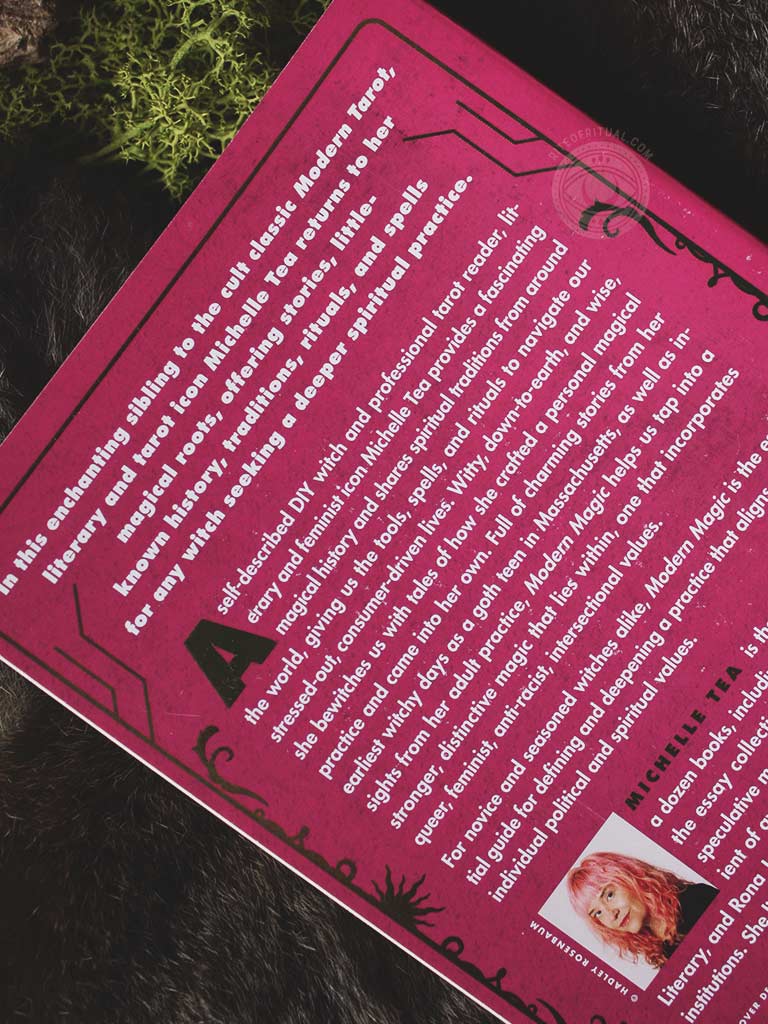 In this enchanting sibling to the cult classic Modern Tarot,
literary and tarot icon Michelle Tea returns to her
magical roots, offering stories, little-
known history, traditions, rituals, and spells
for any witch seeking a deeper spiritual practice.
A self-described DIY witch and professional tarot reader, lit-
erary and feminist icon Michelle Tea provides a fascinating
magical history and shares spiritual traditions from around
the world, giving us the tools, spells, and rituals to navigate our
stressed-out, consumer-driven lives. Witty, down-to-earth, and wise,
she bewitches us with tales of how she crafted a personal magical
practice and came into her own. Full of charming stories from her
earliest witchy days as a goth teen in Massachusetts, as well as in-
sights from her adult practice, Modern Magic helps us tap into a
stronger, distinctive magic that lies within, one that incorporates
queer, feminist, anti-racist, intersectional values.
For novice and seasoned witches alike, Modern Magic is the
tial guide for defining and deepening a practice that
individual political and spiritual values.
MICHELLE TEA is
a dozen books,
the essay
speculative
of
Literary, and Rona
institutions. She
© HADLEY ROSENBAUM
RITEOFRITUAL.COM